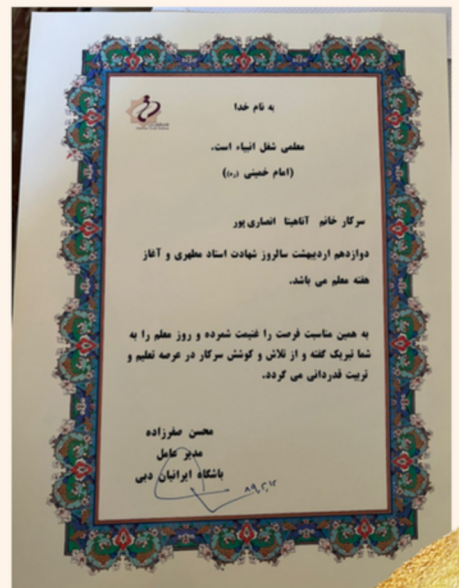 به نام خدا
معلمی شغل انبیاء است.
(امام خمینی (ره))
سرکار خانم آناهیتا انصاری پور
دوازدهم اردیبهشت سالروز شهادت استاد مطهری و آغاز
هفته معلم می باشد.
به همین مناسبت فرصت را غنیمت شمرده و روز معلم را به
شما تبریک گفته و از تلاش و کوشش سرکار در عرصه تعلیم و
تربیت قدردانی می گردد.
محسن صفرزاده
مدیر عامل
باشگاه ایرانیان دبی
۸۹,۲,۱۲